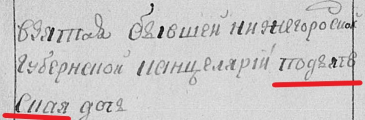 взятой бывшей нижегороской
губернской канцелярий подъяче
ская дочь